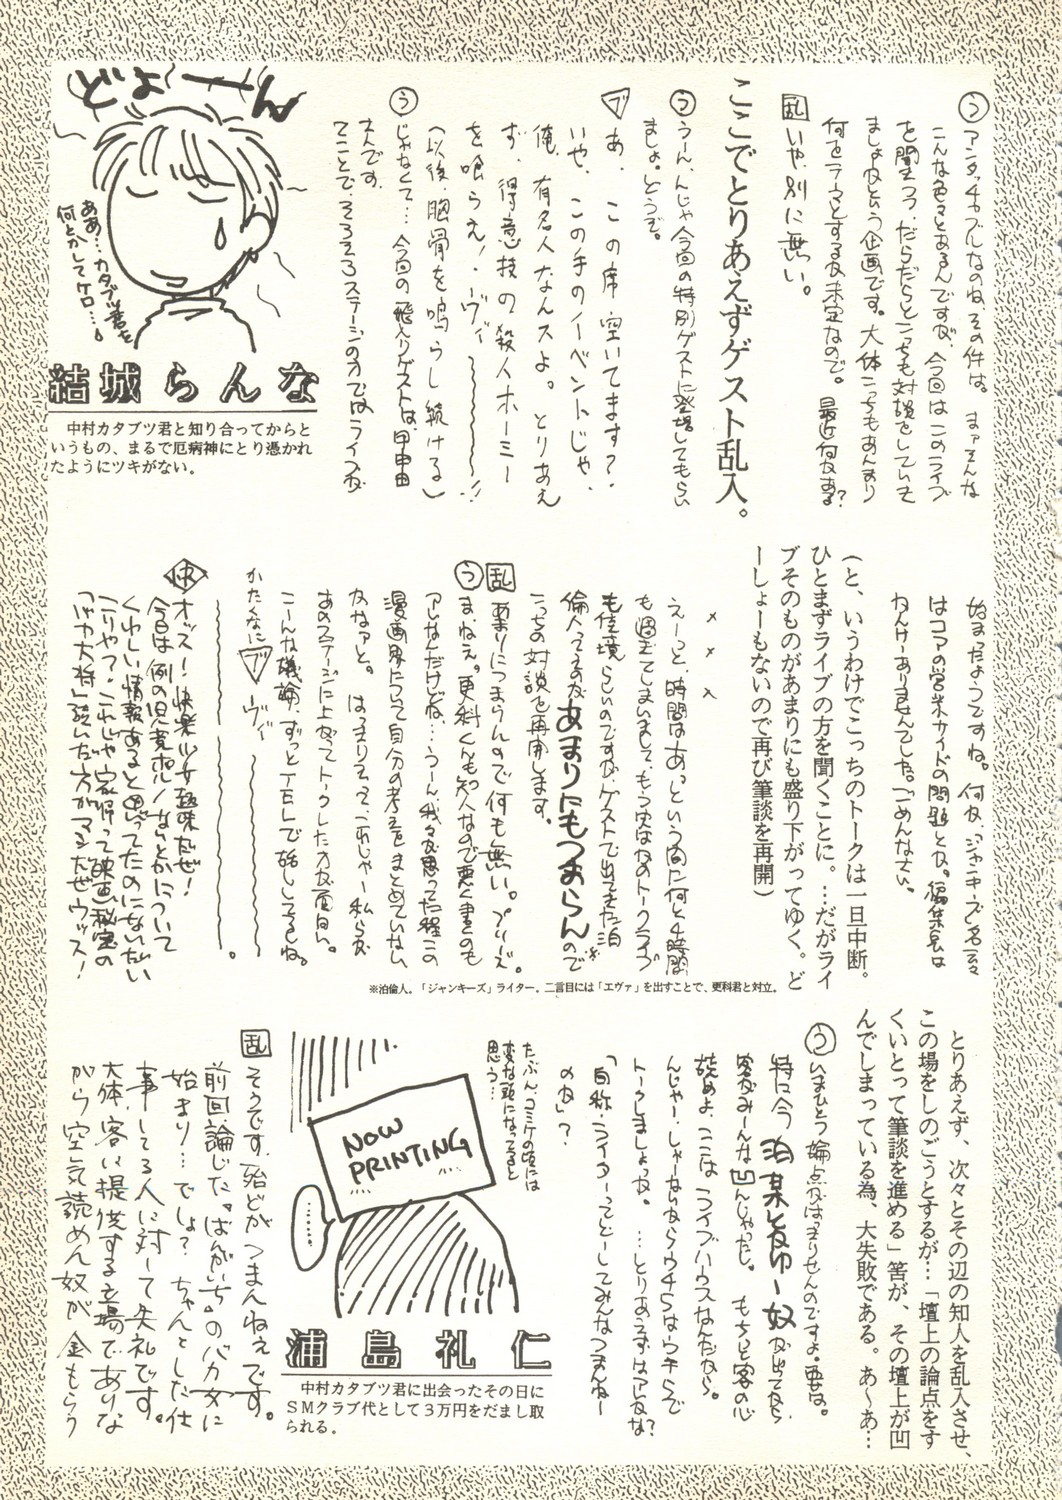 う アンタッチャブルなのね、その件は。まァそんな
こんな色々とあるんですが、今回はこのライブ
を聞きつつ、だらだらとこっちも対談をしていき
ましょうという企画です。大体こっちもあんまり
何をテーマとするか未定なので。最近何かある?
乱 いや、別に無い。
ここでとりあえずゲスト乱入。
う うーん、んじゃ今回の特別ゲストに登場してもらい
ましょ。どうぞ。
ブ あ、この席空いてます?
いや、この手のイベントじゃ、
俺、有名人なんスよ。とりあえ
ず、得意技の殺人ホーミー
を喰らえ!・ヴィ〜〜〜!!
(以後、胸骨を鳴らし続ける)
う じゃなくて…今回の飛入りゲストは、
大人です。
てことで、そろそろステージの方ではライブが
どよーん
ああ…カタブツ君を
何とかしてケロ…。
結城らんな
中村カタブツ君と知り合ってからと
いうもの、まるで厄病神にとり憑かれ
たようにツキがない。
始まったようですね。何か、「ジャンキーズ」名云々
はコアの営業サイドの問題とか。編集長は
わんけーありませんでした。ごめんなさい。
(と、いうわけでこっちのトークは一旦中断。
ひとまずライブの方を聞くことに。…だがライ
ブそのものがあまりにも盛り下がってゆく。ど
ーしょーもないので再び筆談を再開)
× × ×
えーっと、時間はあっという間に何と4時間
も過ぎてしまいまして、もう実はなのトークライブ
も佳境らしいのですが、ゲストで出てきた泊
倫人ってえのがあまりにもつまらんので※
こっちの対談を再開します。
乱 あまりにつまらんので何も無い。プリーズ。
う まぁねえ。更科くんも知人なので悪く書くのも
アレなんだけどね…うーん我々が思った程この
漫画界について自分の考えをまとめていない
かなァと。はっきり言って、これじゃー私らが
あのステージに上がってトークした方が面白い。
こーんな議論、ずっとTELで話ししてるしね。
かたくなに ブ ヴィ〜〜〜
〜〜〜。
快 オッス!快楽少女趣味だぜ!
今日は例の児童ポルノなんとかについて
くわしい情報あると思ってたのにないない
こりゃ?これじゃ家帰って映画秘宝の
「バカ大将」読んだ方がマシだぜウッス!
※泊倫人。「ジャンキーズ」ライター。二言目には「エヴァ」を出すことで、更科君と対立。
とりあえず、次々とその辺の知人を乱入させ、
この場をしのごうとするが…「壇上の論点をす
くいとって筆談を進める」筈が、その壇上が凹
んでしまっている為、大失敗である。あ〜あ…
う いまひとつ論点がはっきりせんのですよ。要は。
特に今泊某とかゆー奴が出てから
客がみーんな凹んじゃったし。もちっと客の心
読めよ、ここはライブハウスなんだから。
んじゃー、しゃーないからウチらはウチらで
トークしましょっか。…とりあえずはアレかな?
「自称・ライターってどーしてみんなつまんねー
のか」?
たぶん、コミケの頃には
変な頭になってると
思う…
NOW
PRINTING
……
浦島礼仁
中村カタブツ君に出会ったその日に
SMクラブ代として3万円をだまし取
られる。
乱 そうです、殆どがつまんねえです。
前回論じた。ばんがいち。のバカ女に
始まり…でしょ?ちゃんとした仕
事してる人に対して失礼です。
大体、客に提供する立場でありな
がら空気読めん奴が金もらう